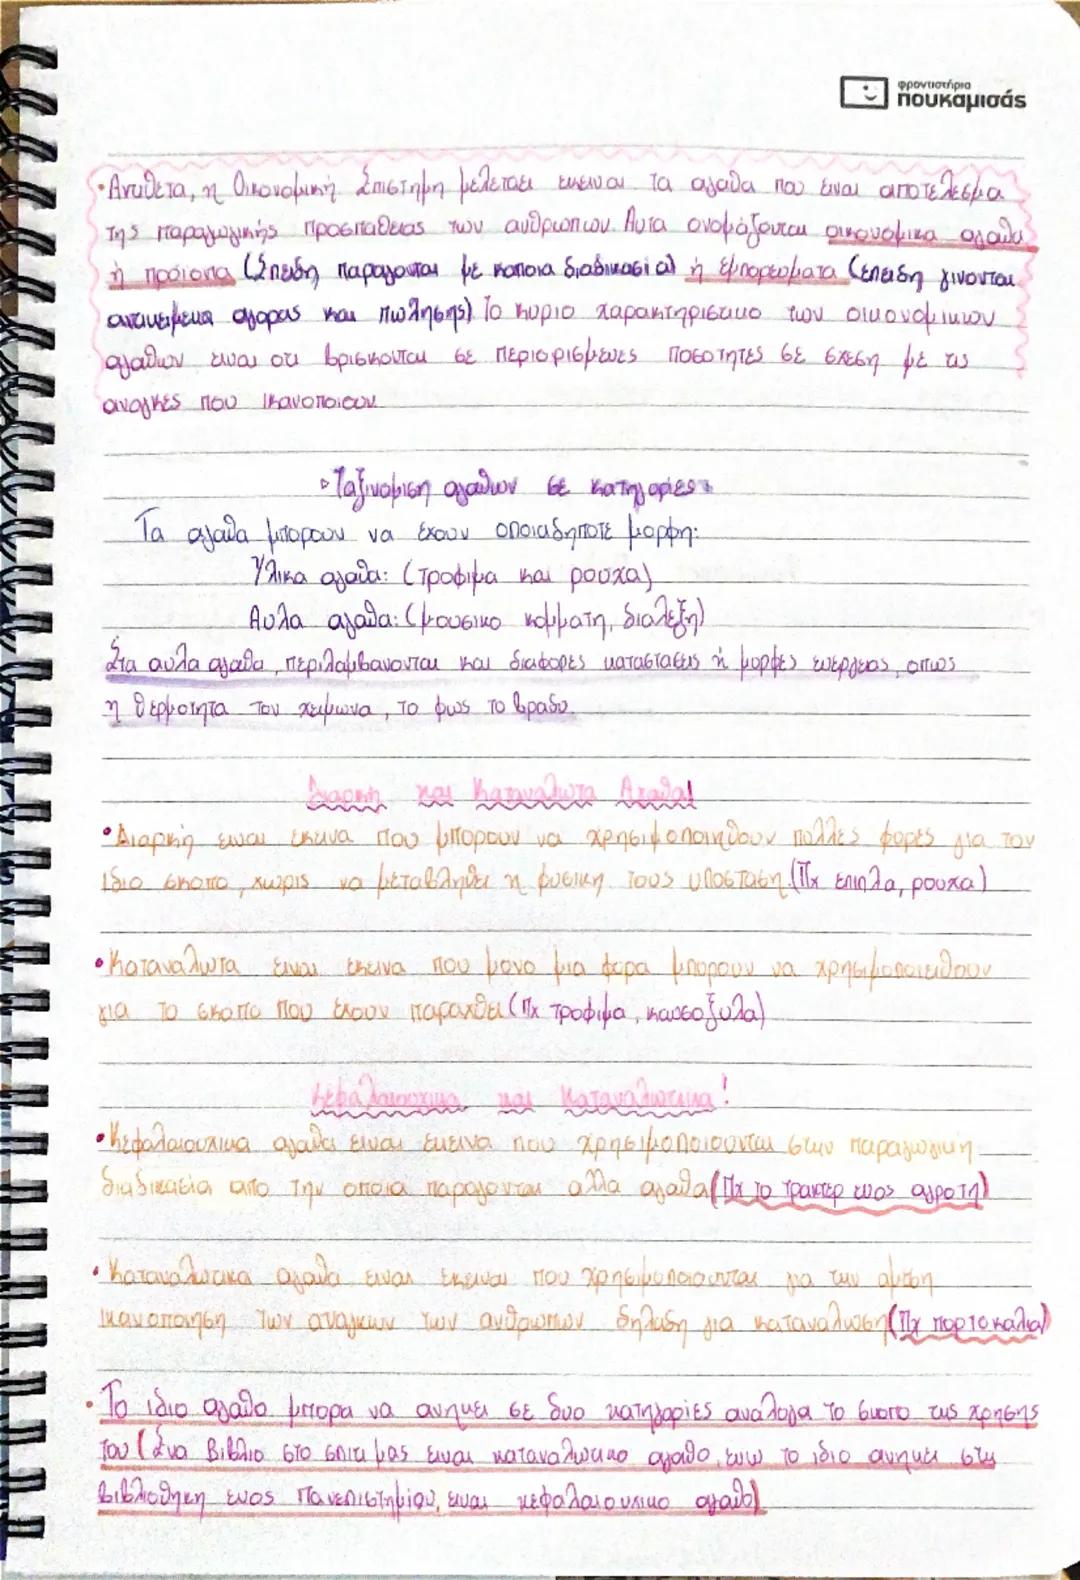 φροντιστήρια
πουκαμισάς
•Αντιθετα, η Οικονομική Επιστημη μελεταει εκεινα τα αγαθα που ειναι αποτελεσμα
της παραγωγικής προσπαθειας των ανθρωπων. Αυτα ονομάζονται οικονομικα αγαθα
ή προϊοντα (Επειδη παραγονται με καποια διαδικασια) ή εμπορευματα (επειδη γινονται
αντικειμενα αγορας και πωλησης) Το κυριο χαρακτηριστικο των οικονομικων
αγαθων ειναι οτι βρισκονται σε περιορισμενες ποσοτητες σε σχεση με τις
αναγκες που ικανοποιουν
▹Ταξινομιση αγαθων σε κατηγοριες:
Τα αγαθα μπορουν να εχουν οποιαδηποτε μορφη:
Υλικα αγαθα: (τροφιμα και ρουχα)
Αυλα αγαθα: (μουσικο κομματη, διαλεξη)
Στα αυλα αγαθα, περιλαμβανονται και διαφορες καταστασεις ή μορφες ενεργειας, οπως
η θερμοτητα τον χειμωνα, το φως το βραδυ.
Διαρκή και Καταναλωτα Αγαθα!
•Διαρκή ειναι εκεινα που μπορουν να χρησιμοποιηθουν πολλες φορες για τον
ιδιο σκοπο, χωρις να μεταβληθει η φυσικη τους υποσταση.(Πχ επιπλα, ρουχα)
•Καταναλωτα ειναι εκεινα που μονο μια φορα μπορουν να χρησιμοποιειθουν
για το σκοπο που εχουν παραχθει (Πχ τροφιμα, καυσοξυλα)
Κεφαλαιουχικα και Καταναλωτικα!
•Κεφαλαιουχικα αγαθα ειναι εκεινα που χρησιμοποιουνται στην παραγωγικη
διαδικασια απο την οποια παραγονται αλλα αγαθα(Πχ το τρακτερ ενος αγροτη)
•Καταναλωτικα αγαθα ειναι εκεινα που χρησιμοποιουνται για την αμεση
ικανοποιηση των αναγκων των ανθρωπων δηλαδη για καταναλωση(Πχ πορτοκαλια)
•Το ιδιο αγαθο μπορα να ανηκει σε δυο κατηγοριες αναλογα το σκοπο της χρησης
του (Ενα βιβλιο στο σπιτι μας ειναι καταναλωτικο αγαθο, ενω το ιδιο ανηκει στη
βιβλιοθηκη ενος Πανεπιστημιου, ειναι κεφαλαιουχικο αγαθο)